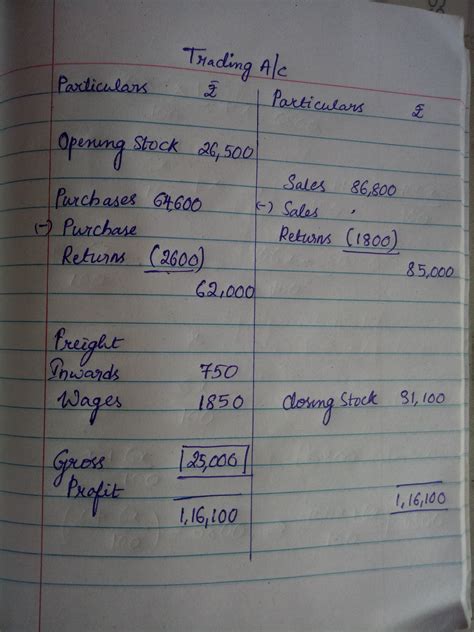 Trading A/c
Particulars ₹
Opening Stock 26,500
Purchases 64600
(-) Purchase
Returns (2600)
62,000
Freight
Inwards 750
Wages 1850
Gross 25,000
Profit
1,16,100
Particulars ₹
Sales 86,800
(-) Sales
Returns (1800)
85,000
Closing Stock 31,100
1,16,100